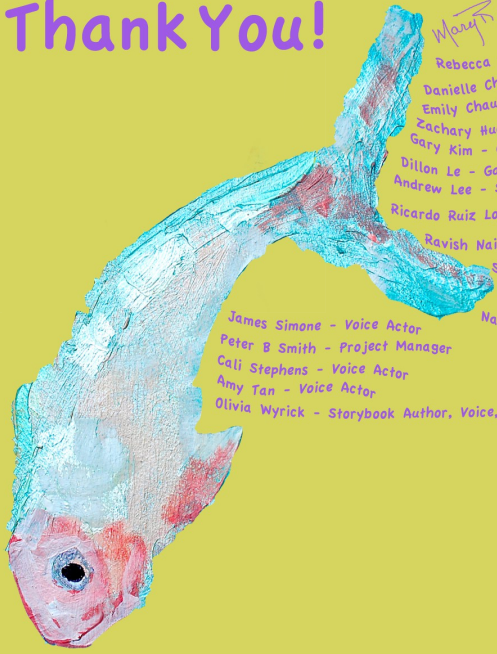 Thank You!
Mary
Rebecca
Danielle Ch
Emily Chau
Zachary Hu
Gary Kim -
Dillon Le - Ga
Andrew Lee - S
Ricardo Ruiz Lo
Ravish Nai
S
Na
James Simone - Voice Actor
Peter B Smith - Project Manager
Cali Stephens - Voice Actor
Amy Tan - Voice Actor
Olivia Wyrick - Storybook Author, Voice,